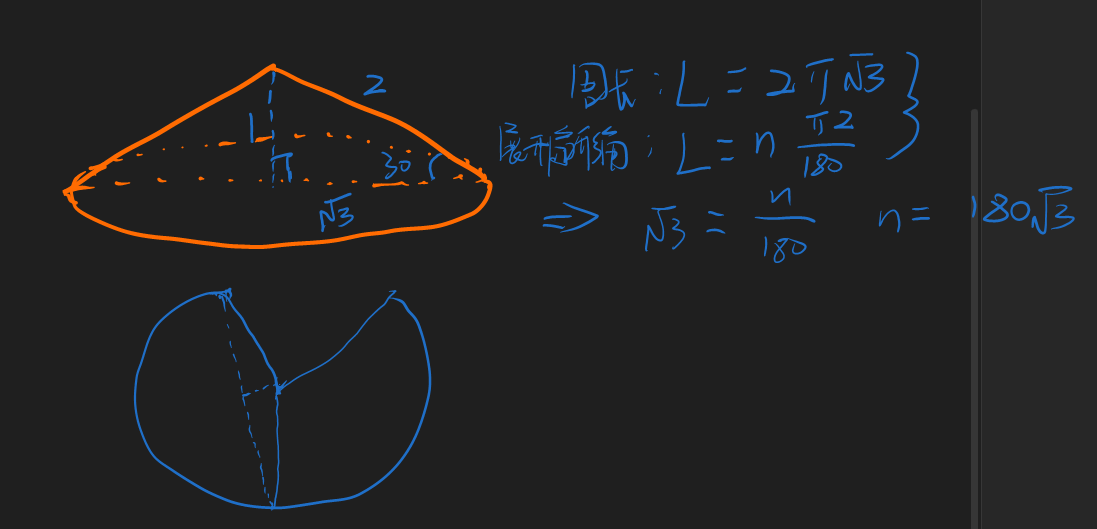 2
1
30
√3
周长：L = 2π√3
展开扇形：L = n π2/180
⇒ √3 = n/180 n = 180√3